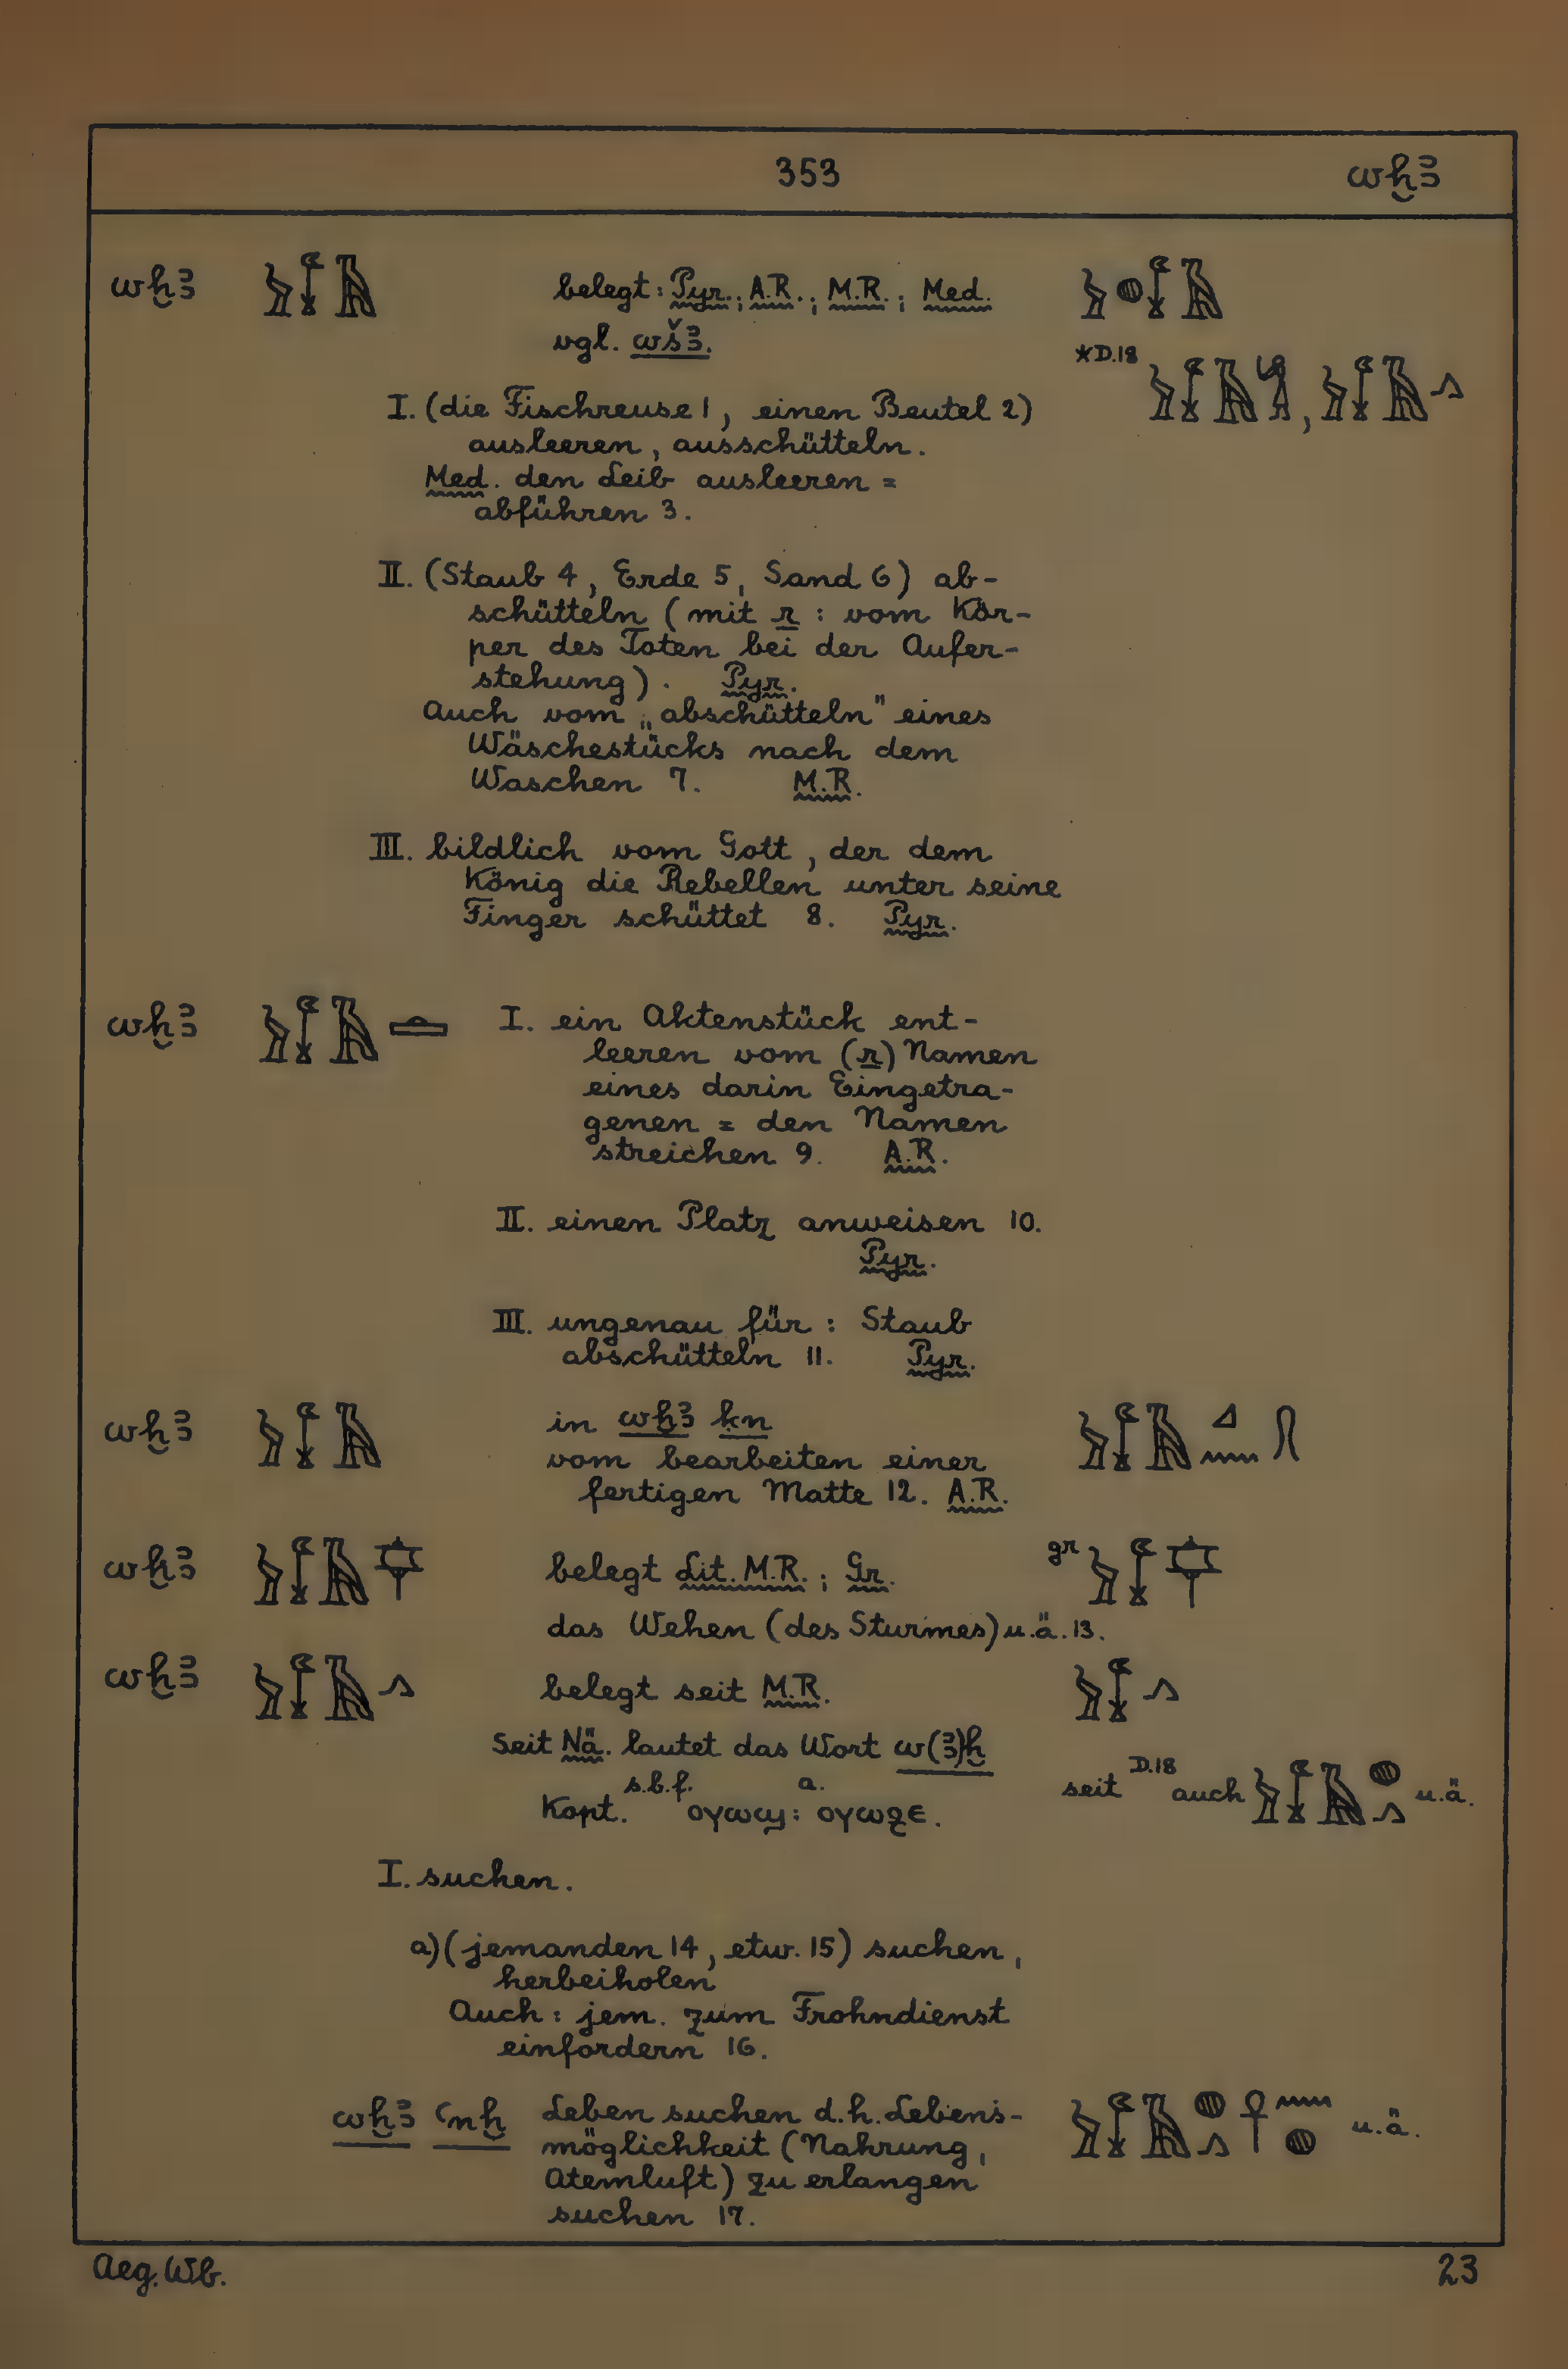 353 wḫꜣ
wḫꜣ 𓅱𓆼𓄿 belegt: Pyr.; A.R.; M.R.; Med. 𓅱𓐍𓆼𓄿
vgl. wšꜣ.
*D.18 𓅱𓆼𓄿𓀜, 𓅱𓆼𓄿𓂻
I. (die Fischreuse 1, einen Beutel 2)
ausleeren, ausschütteln.
Med. den Leib ausleeren =
abführen 3.
II. (Staub 4, Erde 5, Sand 6) ab-
schütteln (mit r : vom Kör-
per des Toten bei der Aufer-
stehung). Pyr.
Auch vom „abschütteln" eines
Wäschestücks nach dem
Waschen 7. M.R.
III. bildlich vom Gott, der dem
König die Rebellen unter seine
Finger schüttet 8. Pyr.
wḫꜣ 𓅱𓆼𓄿𓏛 I. ein Aktenstück ent-
leeren vom (r) Namen
eines darin Eingetra-
genen = den Namen
streichen 9. A.R.
II. einen Platz anweisen 10.
Pyr.
III. ungenau für : Staub
abschütteln 11. Pyr.
wḫꜣ 𓅱𓆼𓄿 in wḫꜣ ḳn 𓅱𓆼𓄿𓈎𓈖
vom bearbeiten einer
fertigen Matte 12. A.R.
wḫꜣ 𓅱𓆼𓄿𓊡 belegt Lit. M.R.; Gr. gr 𓅱𓆼𓊡
das Wehen (des Sturmes) u.ä. 13.
wḫꜣ 𓅱𓆼𓄿𓂻 belegt seit M.R. 𓅱𓆼𓂻
Seit Nä. lautet das Wort w(ꜣ)ḫ
Kopt. s.b.f. ⲟⲩⲱϣ: a. ⲟⲩⲱϩⲉ. seit D.18 auch 𓅱𓆼𓄿𓐍𓂻 u.ä.
I. suchen.
a) (jemanden 14, etw. 15) suchen,
herbeiholen
Auch : jem. zum Frohndienst
einfordern 16.
wḫꜣ ꜥnḫ Leben suchen d.h. Lebens- 𓅱𓆼𓄿𓐍𓂻𓋹𓈖𓐍 u.ä.
möglichkeit (Nahrung,
Atemluft) zu erlangen
suchen 17.
Aeg. Wb. 23